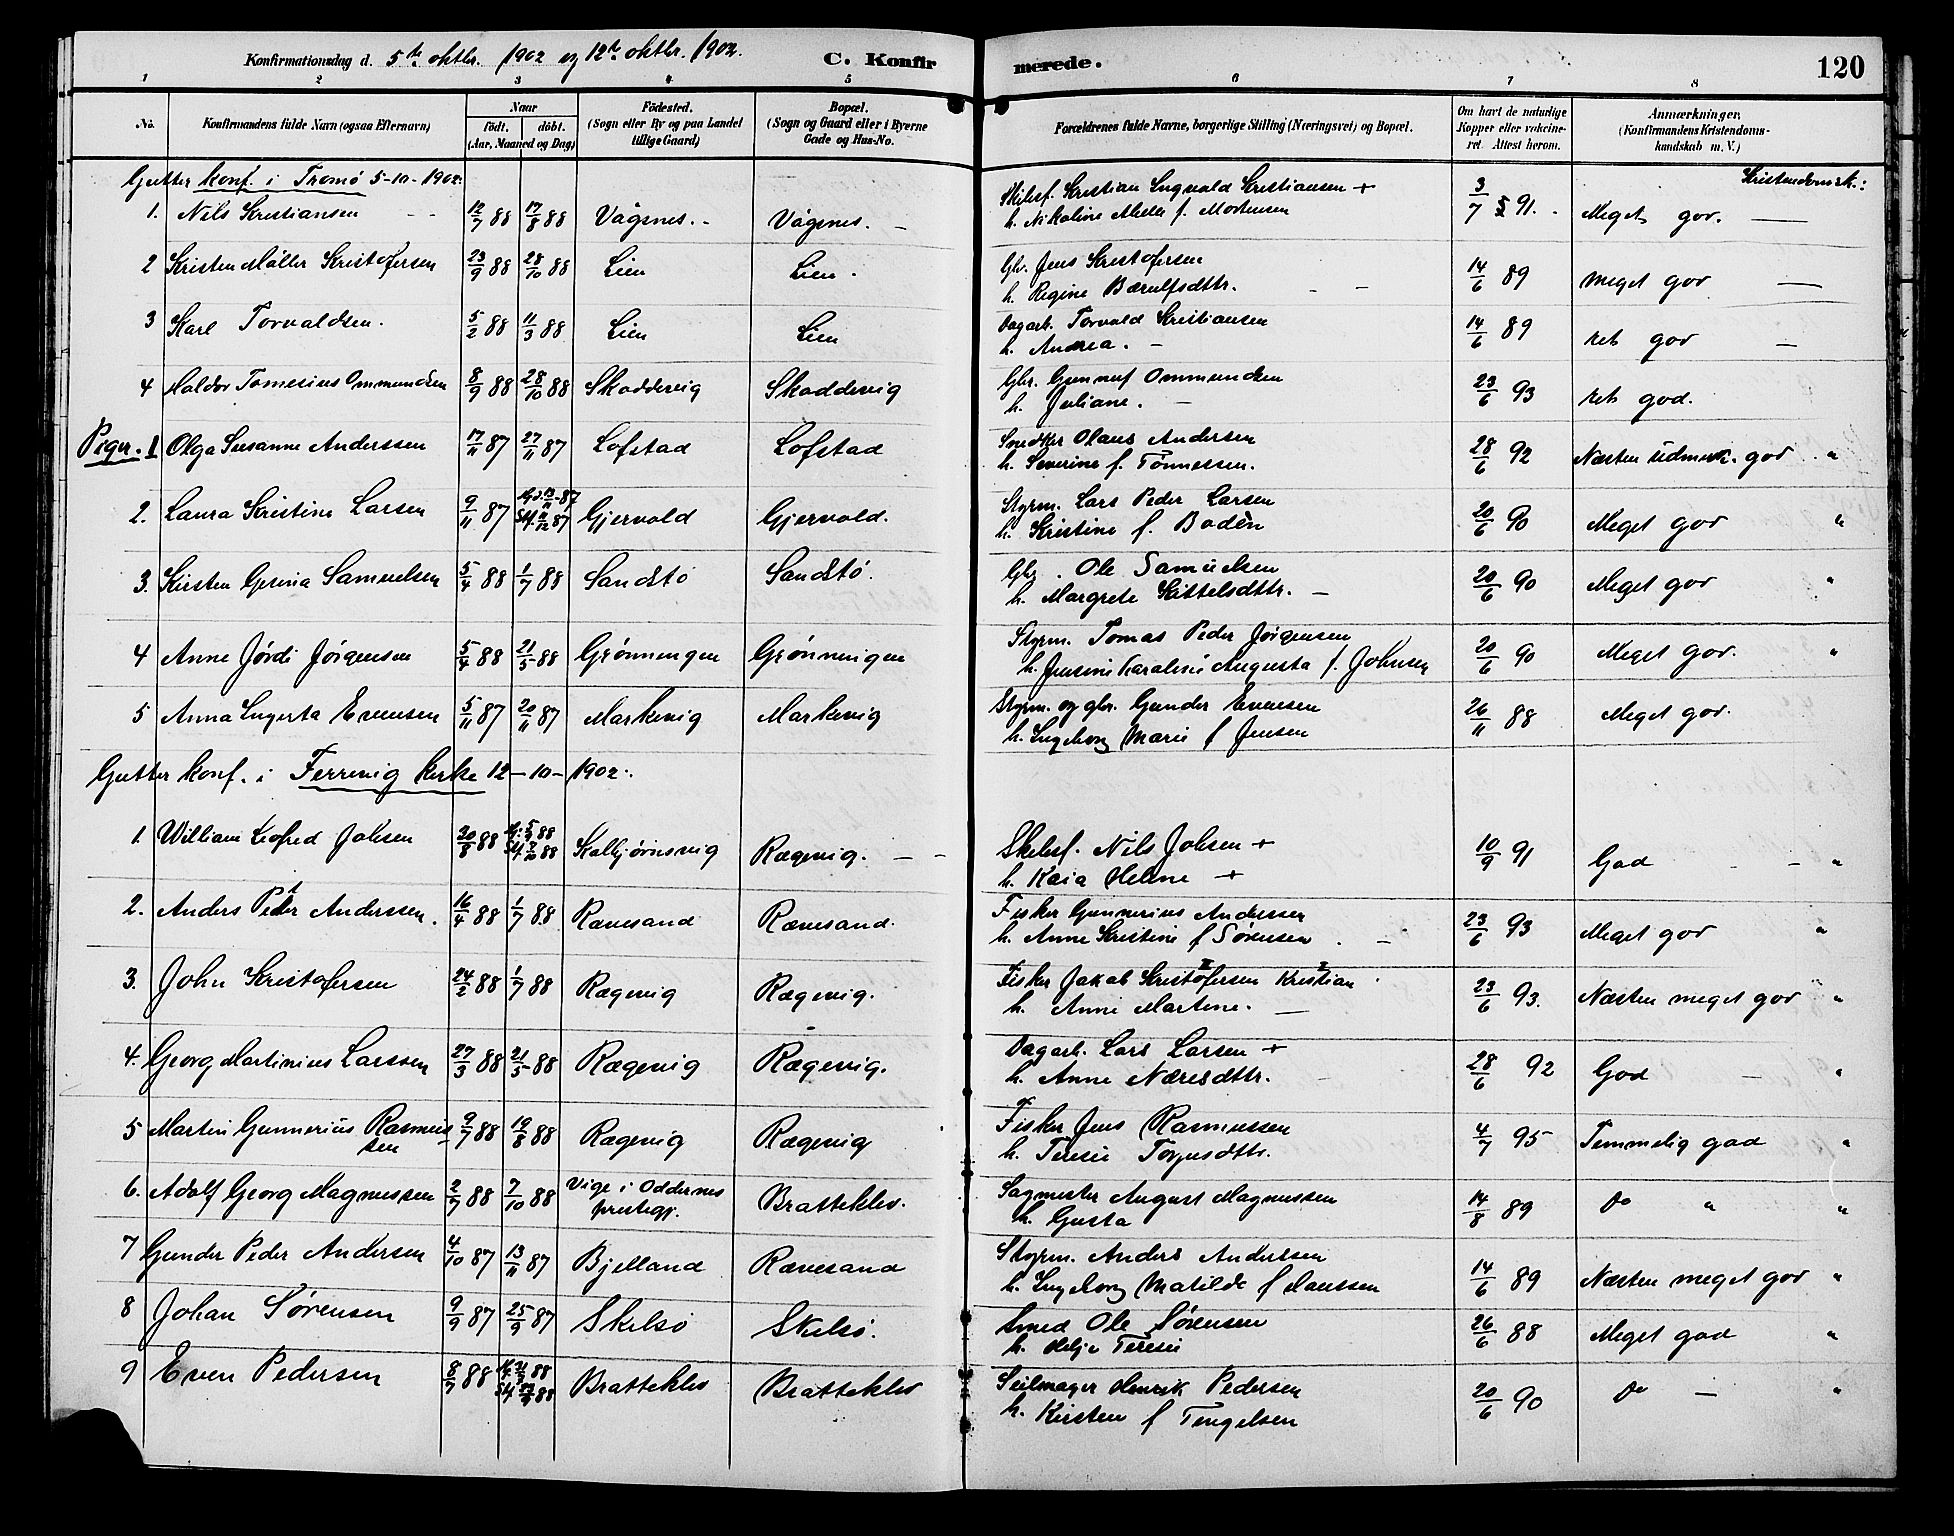 Konfirmationsdag d. 5te oktbr. 1902 og 12te oktbr. 1902. C. Konfirmerede. 120
1 2 3 4 5 6 7 8
No. Konfirmandens fulde Navn (ogsaa Efternavn) Naar födt. döbt. (Aar, Maaned og Dag) Födested. (Sogn eller By og paa Landet tillige Gaard) Bopæl. (Sogn og Gaard eller i Byerne Gade og Hus-No. Forældrenes fulde Navne, borgerlige Stilling (Næringsvei) og Bopæl. Om havt de naturlige Kopper eller vakcineret. Attest herom. Anmærkninger. (Konfirmandens Kristendomskundskab m. V.)
Gutter konf. i Tromö 5-10-1902. Kristendomsk.:
1. Nils Kristiansen 12/7 88 17/8 88 Vågsnes. Vågsnes. Skibsf. Kristian Ingvald Kristiansen +
h. Nikoline f. Mortensen 3/7 91. Meget god.
2 Kristen Möller Kristofersen 23/9 88 28/10 88 Lien Lien. Gbr. Jens Kristofersen
h. Regine Bærulfsdttr. 14/6 89 meget god
3 Karl Torvaldsen. 5/2 88 11/3 88 Lien Lien Dagarb. Torvald Kristiansen
h. Andrea. 14/6 89 ret god
4 Haldor Tomesius Ommundsen 8/9 88 28/10 88 Skoddevig Skoddevig Gbr. Gunnuf Ommundsen
h. Juliane. 23/6 93 ret god.
Piger. 1 Olga Susanne Anderssen 17/11 87 27/11 87 Lofstad Lofstad Snedker Olaus Andersen
h. Severine f. Tönnessen. 28/6 92 Næsten udmerk. god "
2. Laura Kristine Larsen 9/11 87 Hjd. 13/11 87 Stf. 11/12 87 Gjervold Gjervold. Styrm. Lars Peder Larsen
h. Kristine f. Bodèn 20/6 90 Meget god "
3. Kirsten Gesina Samuelsen 5/4 88 1/7 88 Sandstö Sandstö. Gbr. Ole Samuelsen
h. Margrete Kittelsdttr. 20/6 90 Meget god "
4 Anne Jórdi Jörgensen 5/4 88 21/5 88 Grönningen Grönningen Styrm. Tomas Peder Jörgensen
h. Jensine Karoline Augusta f. Johnsen 20/6 90 Meget god. "
5 Anna Ingerta Evensen 5/11 87 20/11 87 Markevig Markevig Styrm. og gbr. Gunder Evensen
h. Ingeborg Marie f Jensen 26/11 88 Meget god.
Gutter konf. i Færrevig kirke 12-10-1902.
1. William Leofred Jobsen 30/8 88 Kolbjörnsvig Rægevig. Skibsf. Nils Jobsen +
h. Kaia Helene + 10/9 91 God "
2. Anders Peter Anderssen. 16/4 88 1/7 88 Rævesand Rævesand. Fisker Gunnerius Anderssen
h. Anne Kristine f Sörensen. 23/6 93 Meget god "
3. John Kristofersen 24/2 88 1/7 88 Rægevig Rægevig. Fisker Jakob Kristofersen Kristian
h. Anne Martine. 23/6 93. Næsten meget god "
4. Georg Martinius Larssen 27/3 88 21/5 88 Rægevig Rægevig. Dagarb. Lars Larsen +
h. Anne Næresdttr. 28/6 92 God "
5 Martin Gunnerius Rasmussen 9/7 88 19/8 88 Rægevig Rægevig Fisker Jens Rasmussen
h. Teresie Torjusdttr. 4/7 95 Temmelig god "
6. Adolf Georg Magnussen 2/7 88 7/10 88 Vige i Oddernes prestegj. Bratteklev. Sagmester August Magnussen
h. Gusta 14/8 89 do " "
7 Gunder Peder Andersen 4/10 87 13/11 87 Bjelland Rævesand Styrm. Anders Anderssen
h. Ingeborg Matilde f Hanssen 14/6 89 Næsten meget god "
8 Johan Sörensen 9/9 87 25/9 87 Skilsö Skilsö. Smed Ole Sörensen
h. Helje Teresie 26/6 88 Meget god "
9 Even Pedersen 8/7 88 Bratteklev Bratteklev Seilmager Henrik Pedersen
h. Kirsten f Tengelsen 20/6 90 do "